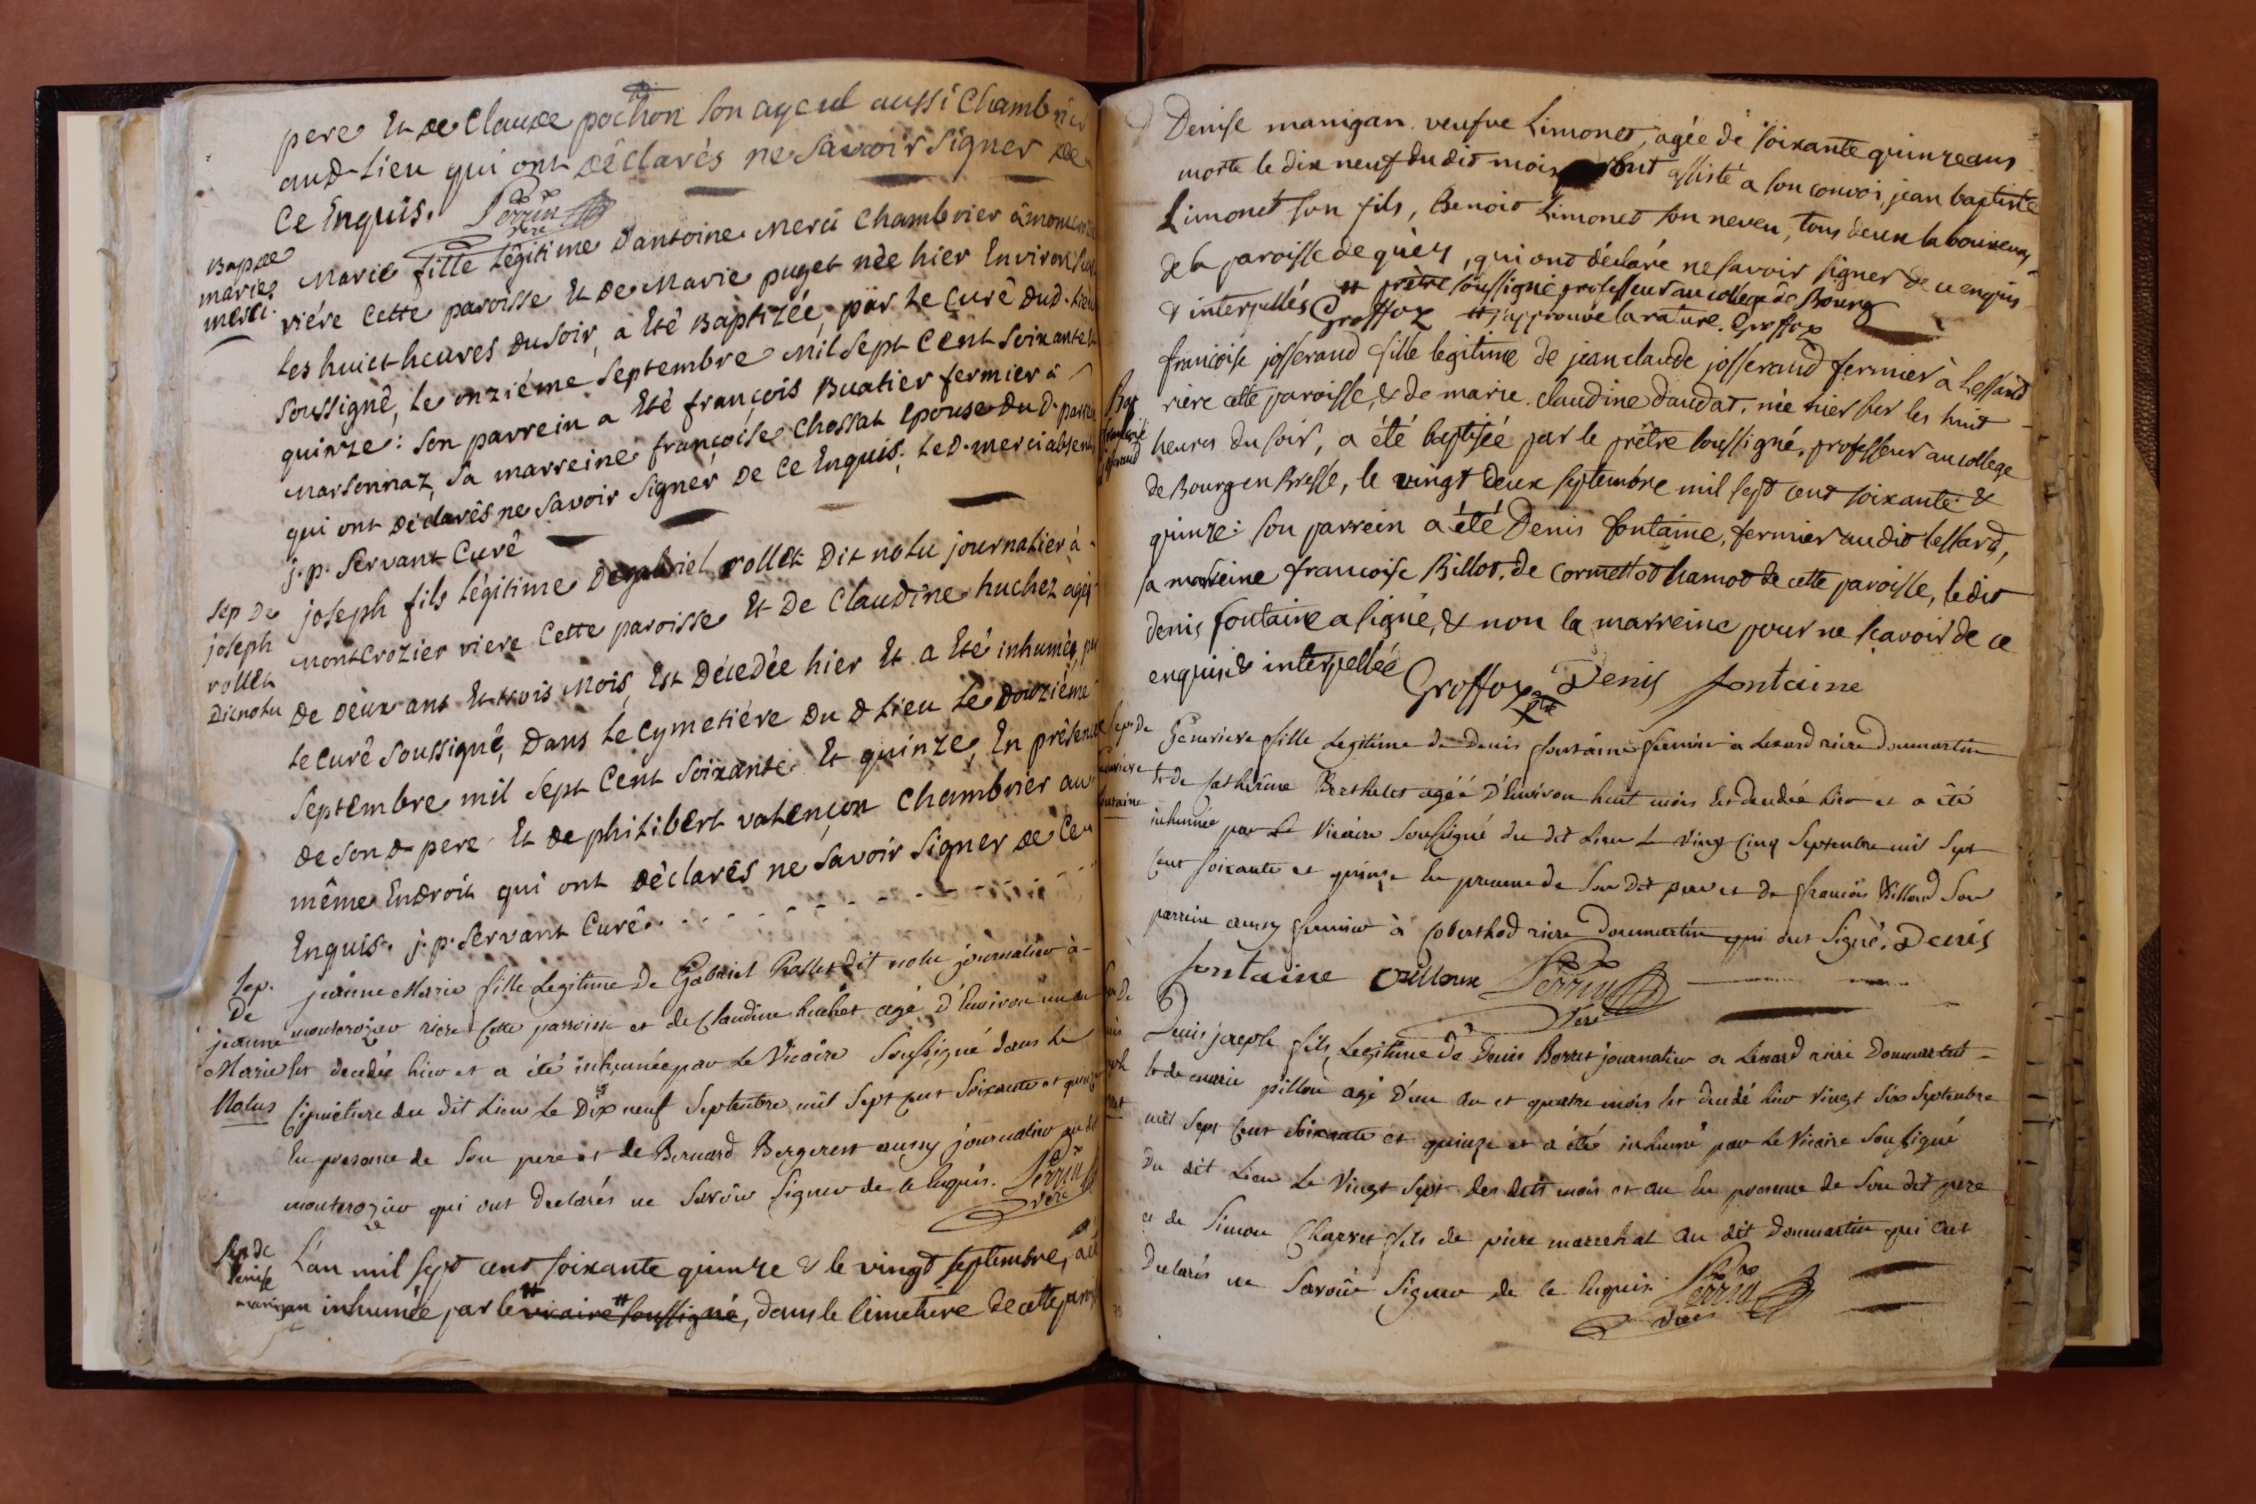 pere Et de Claude pochon son ayeul aussi Chambrier
aud. Lieu qui ont déclarés ne savoir signer de
Ce Enquis. Perrin
vere
Bap de
marie
merci.
Marie fille Légitime d'antoine Merci Chambrier à
riére Cette paroisse Et de Marie puget née hier Environ
les huict heures du soir, a Eté Baptizée, par Le Curé dud. Lieu
soussigné, Le onziéme septembre mil sept Cent soixante Et
quinze: son parrein a Eté françois Buatier fermier à
Marsonnaz, sa marreine françoise Chossat Epouse du d. parrein
qui ont déclarés ne savoir signer de Ce Enquis, Le d. merci absent
j. p. servant Curé
sep de
joseph
rollet
dit nolu
joseph fils légitime de gabriel rollet dit nolu journalier à
montcrozier riere Cette paroisse Et de Claudine huchet agé
de deux ans Et trois mois, Est décedée hier Et a Eté inhumée, par
Le Curé soussigné, dans Le Cymetiére du d Lieu Le douziéme
septembre mil sept Cent soixante Et quinze, En présence
de son d pere Et de philibert valençon Chambrier au
même Endroit qui ont déclarés ne savoir signer de Ce
Enquis. j. p. servant Curé.
Sep.
De
jeanne
Marie
Nolus
jeanne Marie fille Legitime De Gabriel Rollet Dit nolu journalier à
montcrozier riere Cette parroisse et de Claudine huchet agé D'Environ un an
Est decedée hier et a été inhumée par Le Vicaire soussigné dans Le
Cimetiere du dit Lieu Le Dix neuf Septembre mil sept cent soixante et quinze
En presence de son pere et de Bernard Bergeret aussy journalier au dit
montcrozier qui ont declarés ne savoir signer de ce Enquis. Perrin
vere
Sep de
Denise
manigan
L'an mil sept cent soixante quinze & le vingt septembre, a été
inhumée par le vicaire soussigné, dans le cimetiere de cette paroisse
Denise manigan veufve Limonet, agée de soixante quinze ans
morte le dix neuf du dit mois ont assisté a son convoi, jean baptiste
Limonet son fils, Benoit Limonet son neveu, tous deux laboureurs
de la paroisse de , qui ont déclaré ne savoir signer de ce enquis
& interpellés prêtre soussigné, professeur au college de Bourg
Groffoz j'approuve la rature. Groffoz
Bap
francoise
josserand
françoise josserand fille legitime de jean claude josserand fermier à Lessard
riere cette paroisse, & de marie claudine daudat, née hier sur les huit
heures du soir, a été baptisée par le prêtre soussigné, professeur au college
de Bourg en Bresse, le vingt deux septembre mil sept cent soixante &
quinze: son parrein a été Denis fontaine, fermier audit lessard,
sa marreine francoise Billot, de hamot de cette paroisse, le dit
denis fontaine a signé, & non la marreine pour ne sçavoir de ce
enquise & interpellée Groffoz Denis fontaine
Sep. de
fontaine
Genevieve fille Legitime de Denis fontaine fermier à Lessard riere Dommartin
Et de Catherine Berthelet agée D'Environ huit mois Est decedée hier et a été
inhumée par Le Vicaire soussigné du dit Lieu Le Vingt Cinq Septembre mil sept
cent soixante et quinze En presence de son Dit pere et de françois Villoud son
parrein aussy fermier à riere Dommartin qui ont Signé. Denis
fontaine Villoux Perrin
vere
Denis joseph fils Legitime de Denis Borret journalier a Lessard riere Dommartin
Et de marie pillon agé d'un an et quatre mois Est decedé hier vingt six septembre
mil sept cent soixante et quinze et a été inhumé par Le Vicaire soussigné
Du dit Lieu Le Vingt sept des dits mois et an En presence de son dit pere
et de Simon Charvet fils de piere marechal au dit Dommartin qui ont
declarés ne savoir signer de ce Enquis Perrin
vere